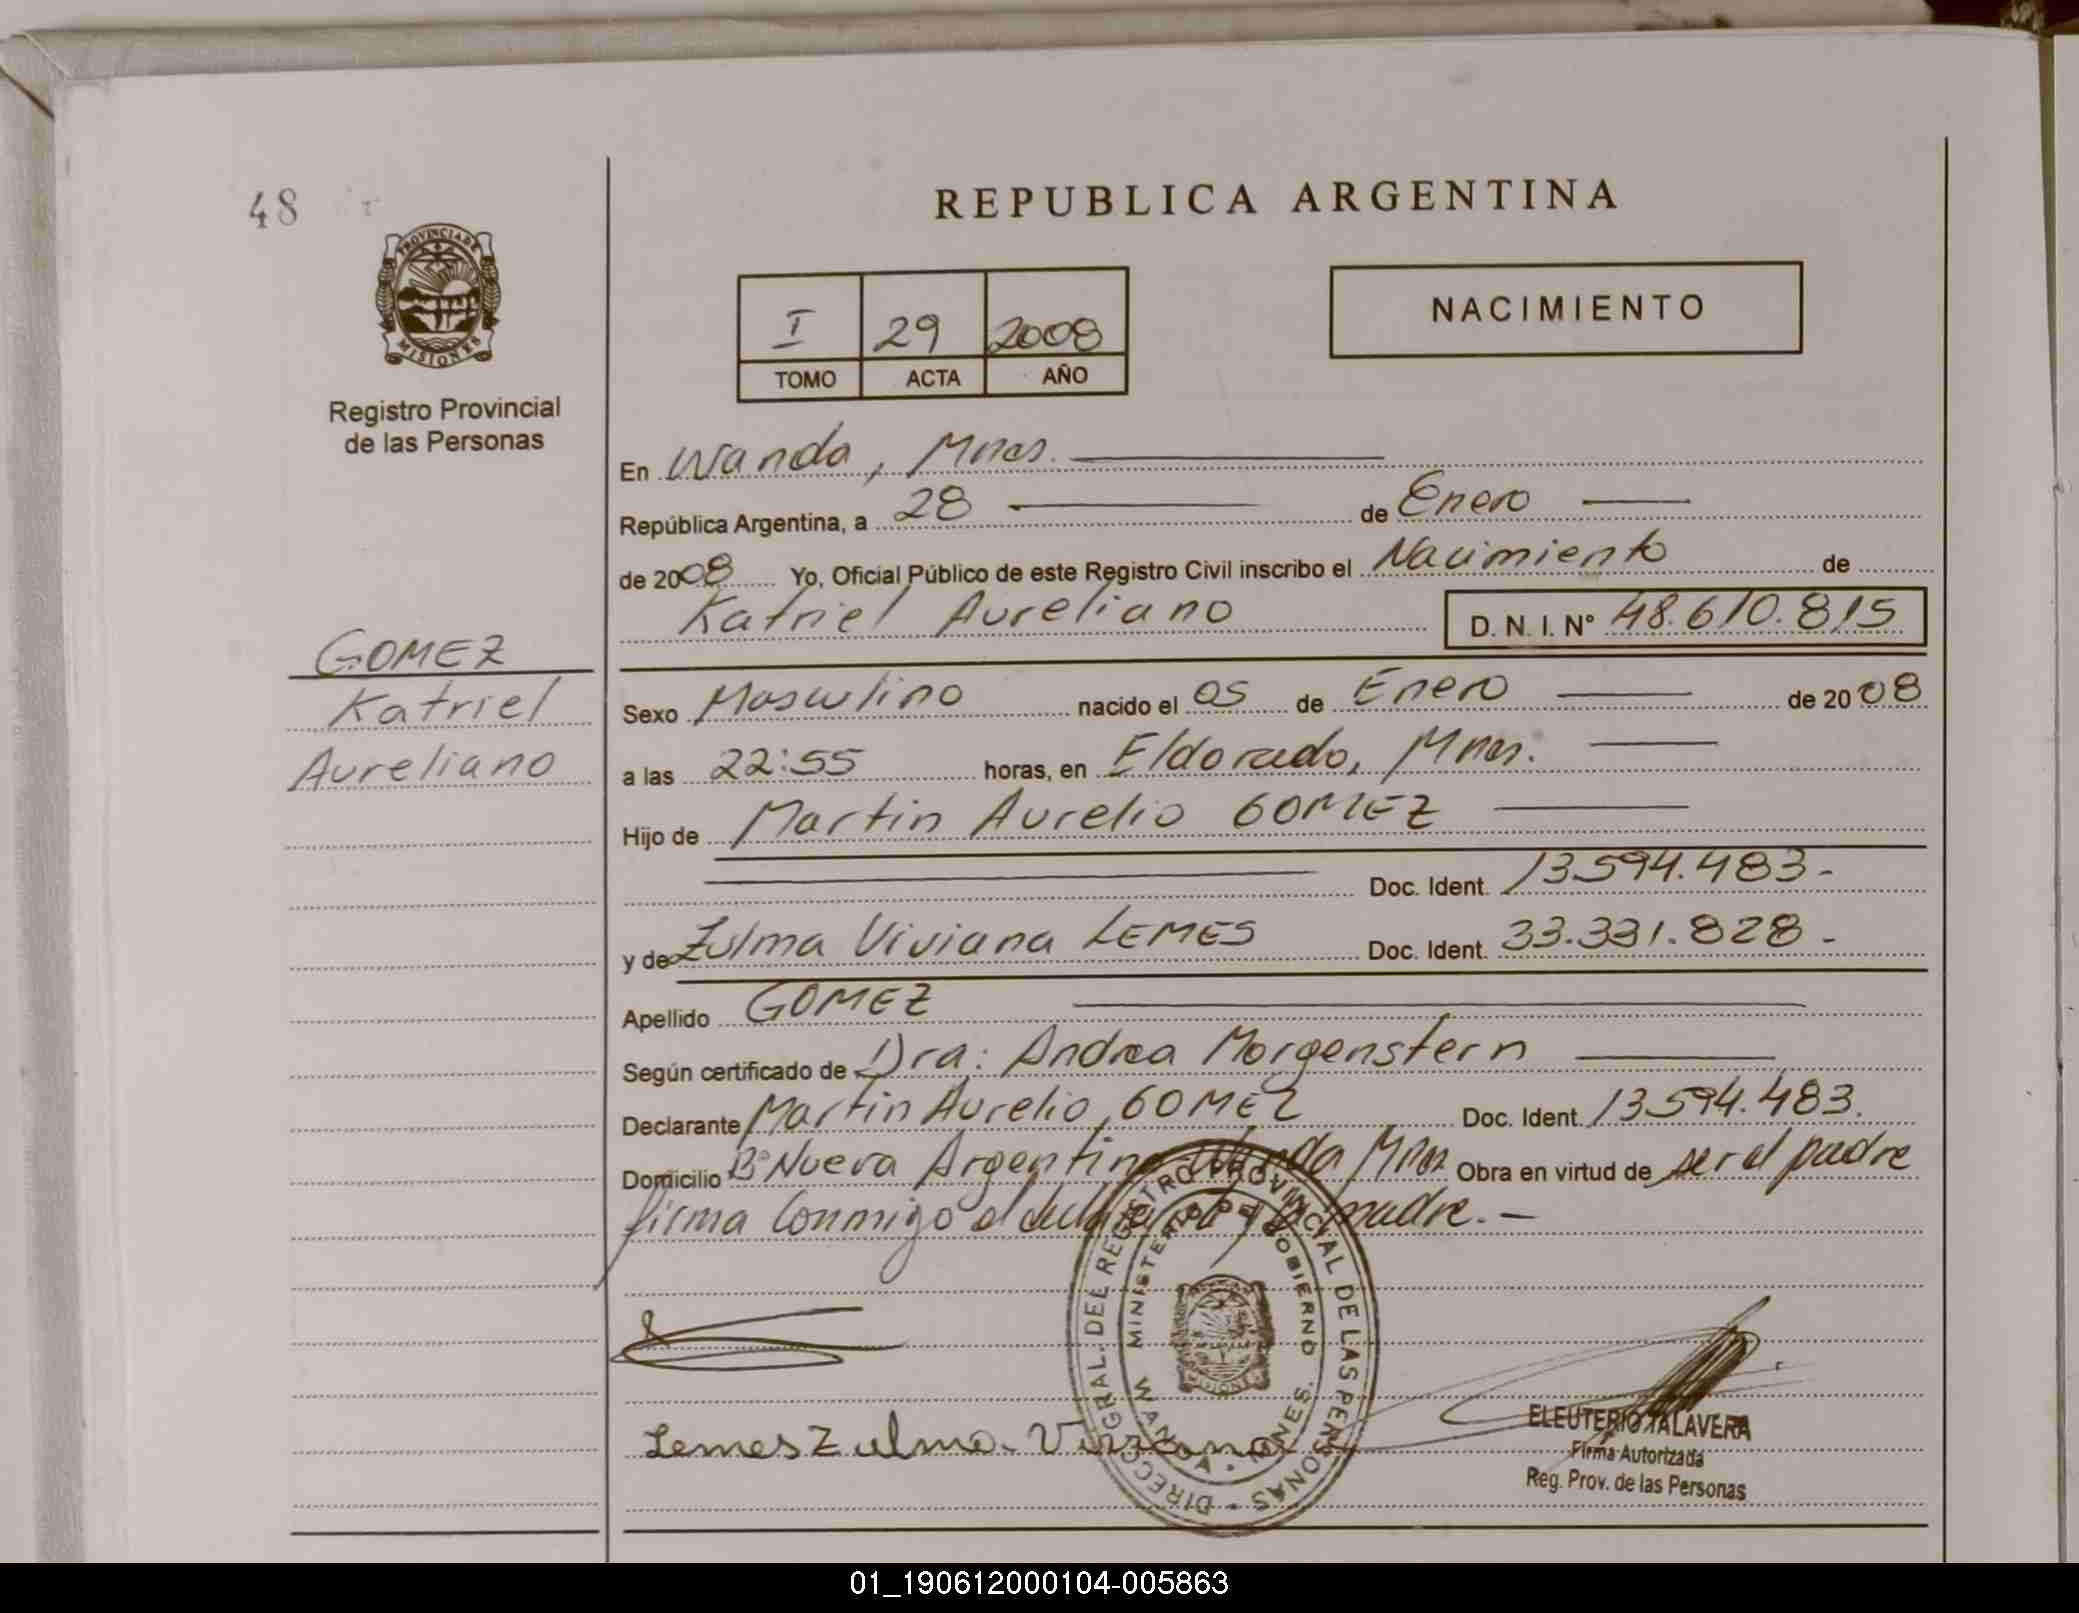 48
REPUBLICA ARGENTINA
PROVINCIA DE
MISIONES
Registro Provincial
de las Personas
I 29 2008
TOMO ACTA AÑO
NACIMIENTO
En Wanda, Mnes.
República Argentina, a 28 de Enero
de 2008 Yo, Oficial Público de este Registro Civil inscribo el Nacimiento de
Katriel Aureliano D. N. I. Nº 48.610.815
GOMEZ
Katriel
Aureliano
Sexo Masculino nacido el 05 de Enero de 2008
a las 22:55 horas, en Eldorado, Mnes.
Hijo de Martin Aurelio GOMEZ
Doc. Ident. 13.594.483.-
y de Zulma Viviana LEMES Doc. Ident. 33.331.828.-
Apellido GOMEZ
Según certificado de Dra: Andrea Morgenstern
Declarante Martin Aurelio GOMEZ Doc. Ident. 13.594.483.
Domicilio Bº Nueva Argentina Wanda Mnes Obra en virtud de ser el padre
firma conmigo el declarante y la madre.-
DIRECC. GRAL. DEL REGISTRO PROVINCIAL DE LAS PERSONAS
MINISTERIO DE GOBIERNO
WANDA - MNES.
Lemes Zulma Viviana
ELEUTERIO TALAVERA
Firma Autorizada
Reg. Prov. de las Personas
01_190612000104-005863